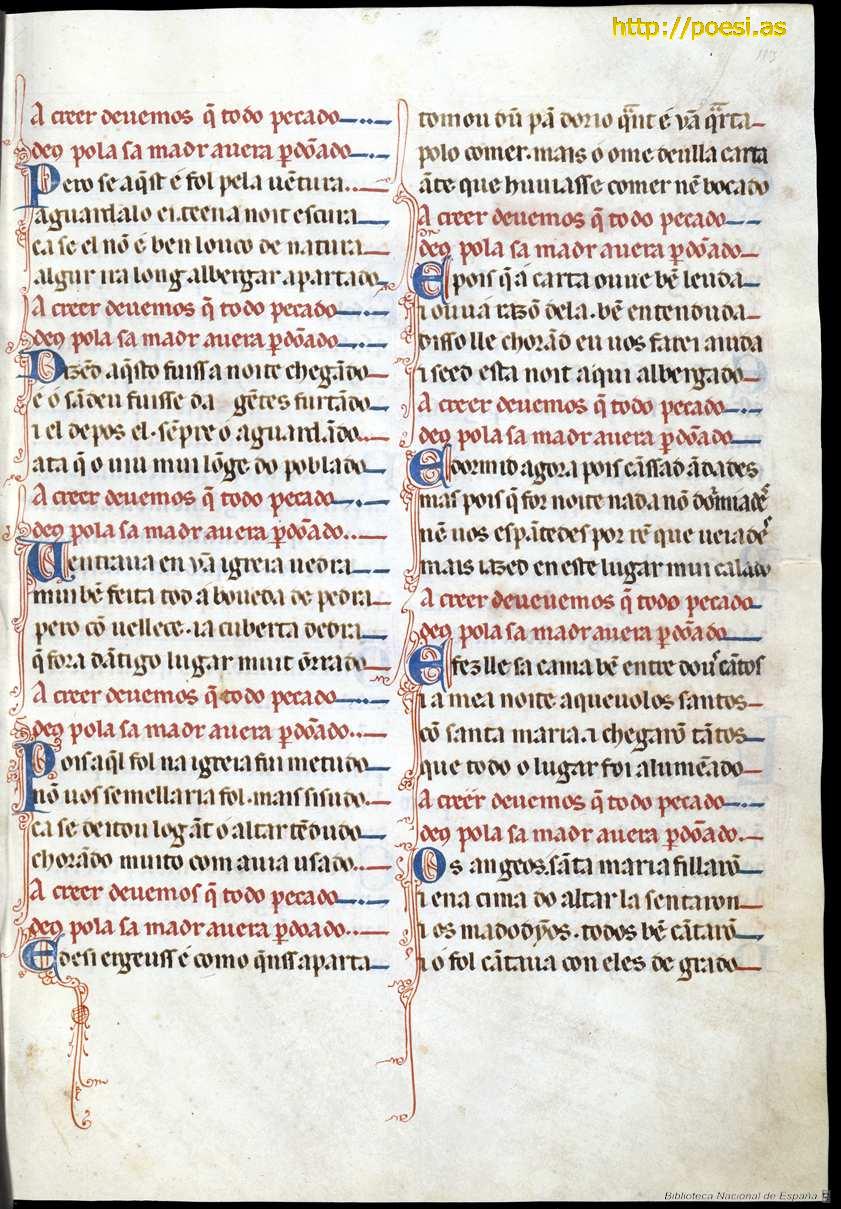 http://poesi.as
113
A creer deuemos q̃ todo pecado
deꝯ pola sa madr auera ꝑdõado
Pero se aq̃st é fol pela uẽtura
aguardalo ei teena noit escura
ca se el nõ é ben louco de natura
algur ira long albergar apartado
A creer deuemos q̃ todo pecado
deꝯ pola sa madr auera ꝑdõado
Dizẽd aq̃sto fuissa noite chegãdo
e ó sãdeu fuisse da gẽtes furtãdo
i el depos el. sẽpre o aguardãdo
ata q̃ o uiu mui lõge do poblado
A creer deuemos q̃ todo pecado
deꝯ pola sa madr auera ꝑdõado
U entraua en vã igreia uedra
mui bẽ feita tod a boueda de pedra
pero cõ uellece. ia cuberta dedra
q̃ fora dãtigo lugar muit õrrado
A creer deuemos q̃ todo pecado
deꝯ pola sa madr auera ꝑdõado
Pois aq̃l fol na igreia fui metudo
nõ uos semellaria fol. mais sisudo
ca se deitou log ãt o altar tẽdudo
chorãdo muito com auia usado
A creer deuemos q̃ todo pecado
deꝯ pola sa madr auera ꝑdoado
E desi ergeuss é como q̃uss aparta
tomou dũ pã dorio q̃nt é vã q̃rta
polo comer. mais o ome deulla carta
ãte que huuiasse comer nẽ bocado
A creer deuemos q̃ todo pecado
deꝯ pola sa madr auera ꝑdõado
E pois q̃ a carta ouue bẽ leuda
i ouu á razõ dela. bẽ entenduda
disso lle chorãd eu uos farei aiuda
i seed esta noit aqui albergado
A creer deuemos q̃ todo pecado
deꝯ pola sa madr auera ꝑdõado
E dormid agora pois cãssad ãdades
mas pois q̃ for noite nada nõ dormiades
nẽ uos espãtedes por rẽ que ueiades
mais iazed en este lugar mui calado
A creer deueuemos q̃ todo pecado
deꝯ pola sa madr auera ꝑdõado
E fezlle sa cama bẽ entre dous cãtos
i a mea noite aqueuolos santos
cõ santa maria. i chegarõ tãtos
que todo o lugar foi alumẽado
A creer deuemos q̃ todo pecado
deꝯ pola sa madr auera ꝑdõado
Os angeos. sãta maria fillarõ
i ena cima do altar la sentaron
i os madodỹos. todos bẽ cãtarõ
i ó fol cãtaua con eles de grado
Biblioteca Nacional de España